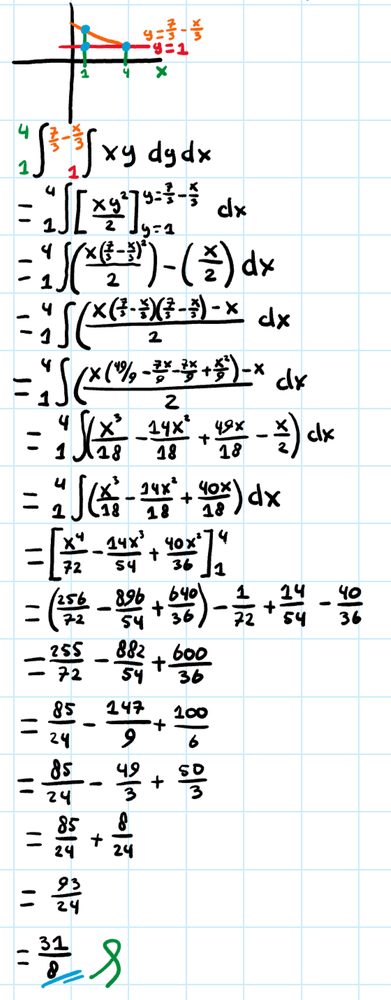 y = 7/3 - x/3
y = 1
1 4 x
₁⁴∫ ₁^(7/3 - x/3)∫ xy dy dx
= ₁⁴∫ [xy²/2]_(y=1)^(y=7/3 - x/3) dx
= ₁⁴∫ (x(7/3 - x/3)²/2) - (x/2) dx
= ₁⁴∫ (x(7/3 - x/3)(7/3 - x/3) - x)/2 dx
= ₁⁴∫ (x(49/9 - 7x/9 - 7x/9 + x²/9) - x)/2 dx
= ₁⁴∫ (x³/18 - 14x²/18 + 49x/18 - x/2) dx
= ₁⁴∫ (x³/18 - 14x²/18 + 40x/18) dx
= [x⁴/72 - 14x³/54 + 40x²/36]₁⁴
= (256/72 - 896/54 + 640/36) - 1/72 + 14/54 - 40/36
= 255/72 - 882/54 + 600/36
= 85/24 - 147/9 + 100/6
= 85/24 - 49/3 + 50/3
= 85/24 + 8/24
= 93/24
= 31/8